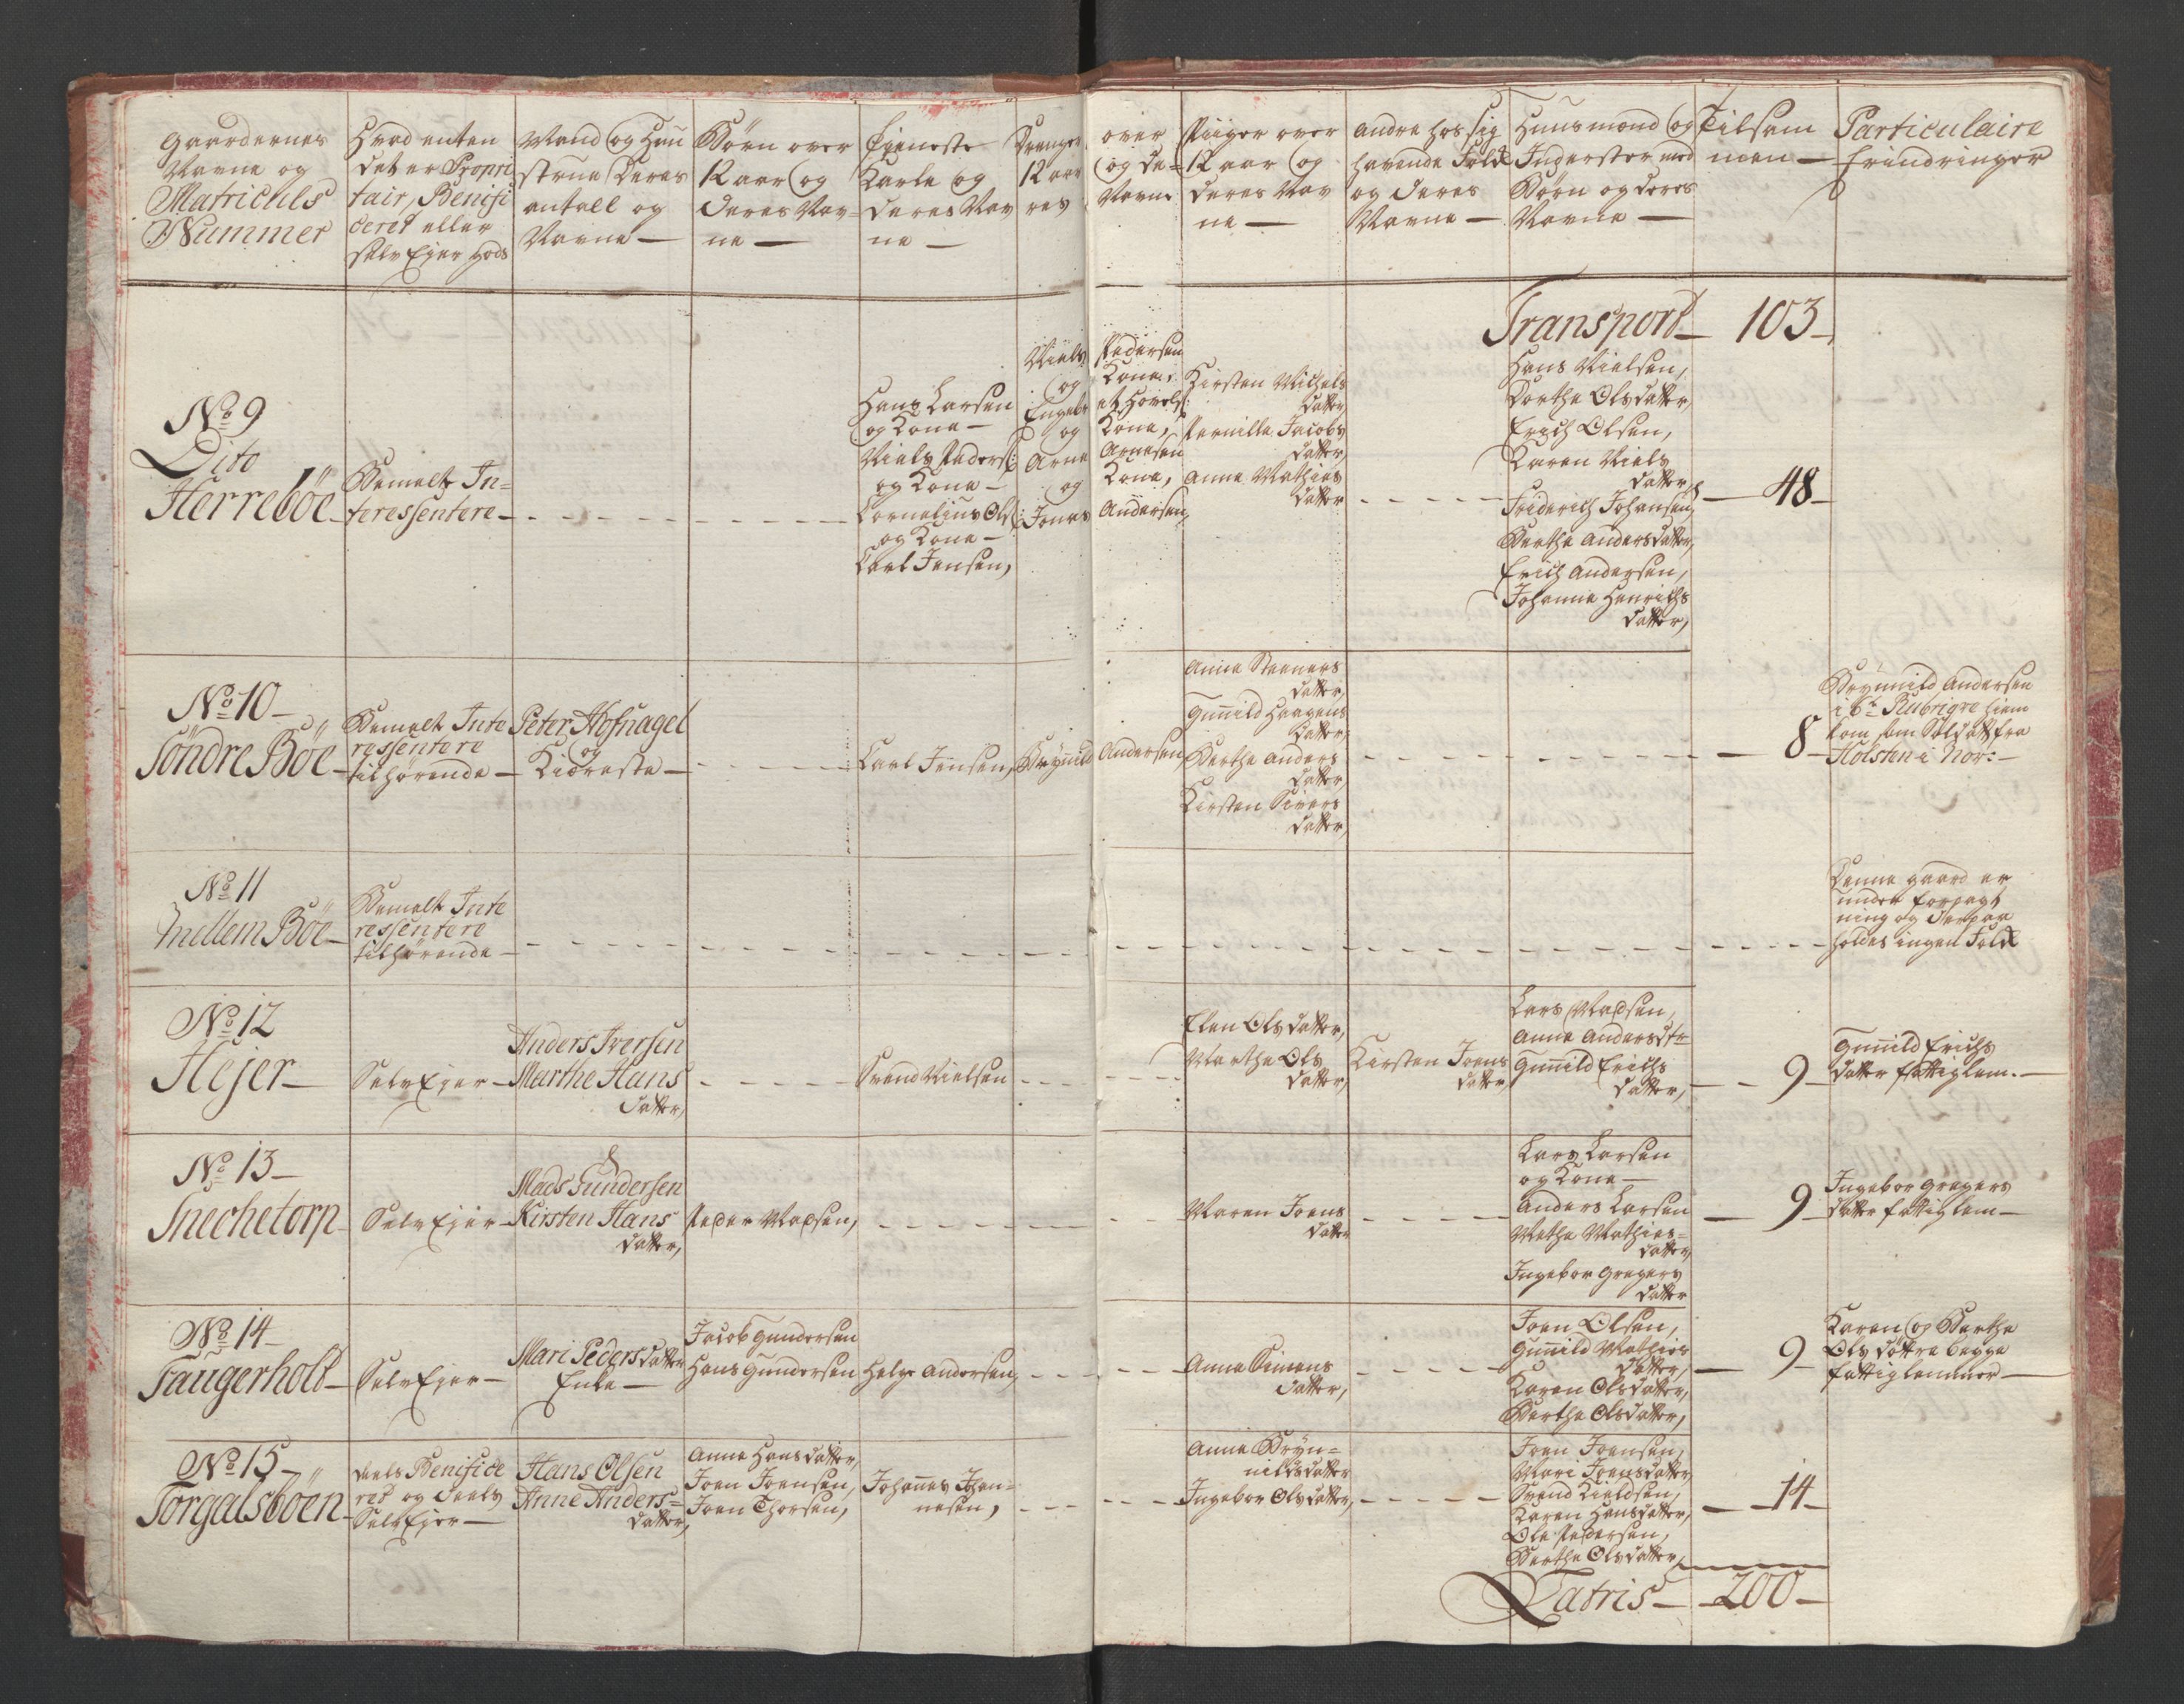 Gaardernes
Navne og
Matriculs
Nummer
Hvad enten
det er Propri
tair, Benifi
ceret eller
selv Ejer Gods
Mand og Huu
strue Deres
antall og
Navne —
Børn over
12 aar og
Deres Nav-
ne —
Tieneste
Karle og
Deres Nav
ne —
Drenge over
12 aar og De-
res Navne
Piiger over
12 aar og
Deres Nav
ne —
Andre hos sig
havende Folk
og Deres
Navne —
Huusmænd og
Inderster med
Børn og deres
Navne —
Tilsam
men —
Particulaire
Erindringer
Transport — 103 —
No 9
Dito
Herreböe —
Bemelte In-
teressentere —
Hans Larsen
og Kone —
Niels Peders:
og Kone —
Cornelius Ols:
og Kone —
Carl Jensen,
Niels Pedersen
og Kone,
Engebret Hovels:
og Kone,
Arne Arnesen
og Kone,
Jonas Andersen,
Kirsten Michels
datter,
Pernille Jacobs
datter,
Anne Mathies
datter
Hans Nielsen,
Dorthe Olsdatter,
Erich Olsen,
Karen Niels
datter,
Friderich Johansen,
Berthe Andersdatter,
Erich Andersen,
Johanne Henrichs
datter,
— 48 —
No 10 —
Söndre Böe —
Bemelte Inte
ressentere
tilhørende —
Peter Hofnagel
og
Kiæreste —
Carl Jensen,
Brÿnild Andersen
Anne Steeners
datter,
Gunild Haagens
datter,
Berthe Anders
datter,
Kirsten Sivers
datter,
— 8 —
Brÿnnild Andersen
i 6te Rubrique hiem
kom som Soldatt fra
Holsten i Nov: —
No 11
Mellem Böe —
Bemelte Inte
ressentere
tilhørende —
Denne gaard er
under Forpagt
ning og Derpaa
holdes ingen Folk
No 12
Hejer —
Selv Ejer —
Anders Iversen
Marthe Hans
datter,
Svend Nielsen
Elen Olsdatter,
Marthe Ols
datter,
Kirsten Joens
datter,
Lars Madsen,
Anne Andersdtr
Gunild Erichs
datter,
— 9 —
Gunild Erichs
datter fattiglem. —
No 13 —
Snechetorp —
Selv Ejer —
Mads Gundersen
Kirsten Hans
datter,
Peder Madsen,
Maren Joens
datter
Lars Larsen
og Kone —
Anders Larsen
Mette Mathies-
datter,
Ingebor Gregers
datter
— 9 —
Ingebor Gregers
datter fattiglem —
No 14 —
Taugerholt —
Selv Ejer —
Mari Pedersdatter
Enke —
Jacob Gundersen
Hans Gundersen
Helge Andersen,
Anne Simens
datter,
Joen Olsen,
Gunnild Mathies
datter,
Karen Olsdatter,
Berthe Olsdatter,
— 9 —
Karen og Berthe
Ols döttre begge
fattiglemmer —
No 15 —
Torgalsböen —
deels Benifice
ret og deels
Selv Ejer —
Hans Olsen
Anne Anders-
datter,
Anne Hansdatter,
Joen Joensen,
Joen Thorsen,
Johannes Johan-
nesen,
Anne Brÿn-
nildsdatter
Ingebor Olsdatter,
Joen Joensen,
Mari Joensdatter,
Svend Kieldsen,
Karen Hansdatter,
Ole Pedersen,
Berthe Olsdatter,
— 14 —
Latris — 200 —